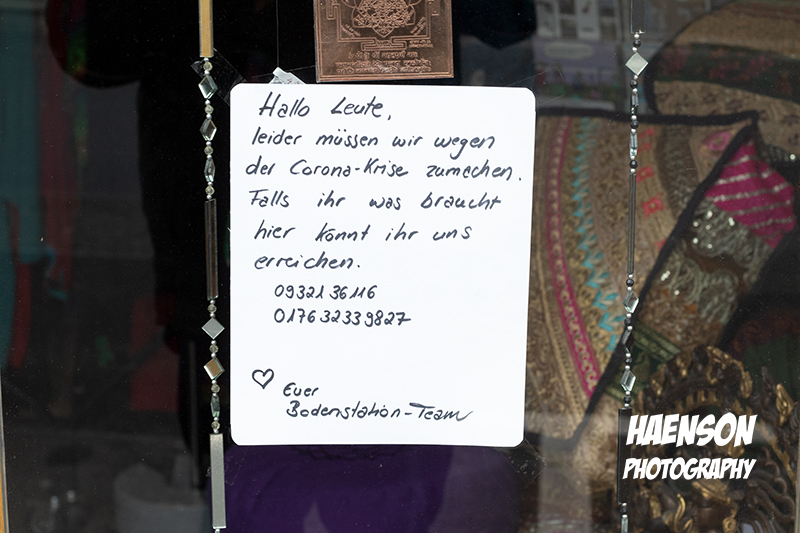 Hallo Leute,
leider müssen wir wegen
der Corona-Krise zumachen.
Falls ihr was braucht
hier könnt ihr uns
erreichen.
09321 36116
0176 32339827
♡ Euer
Bodenstation-Team
HAENSON
PHOTOGRAPHY